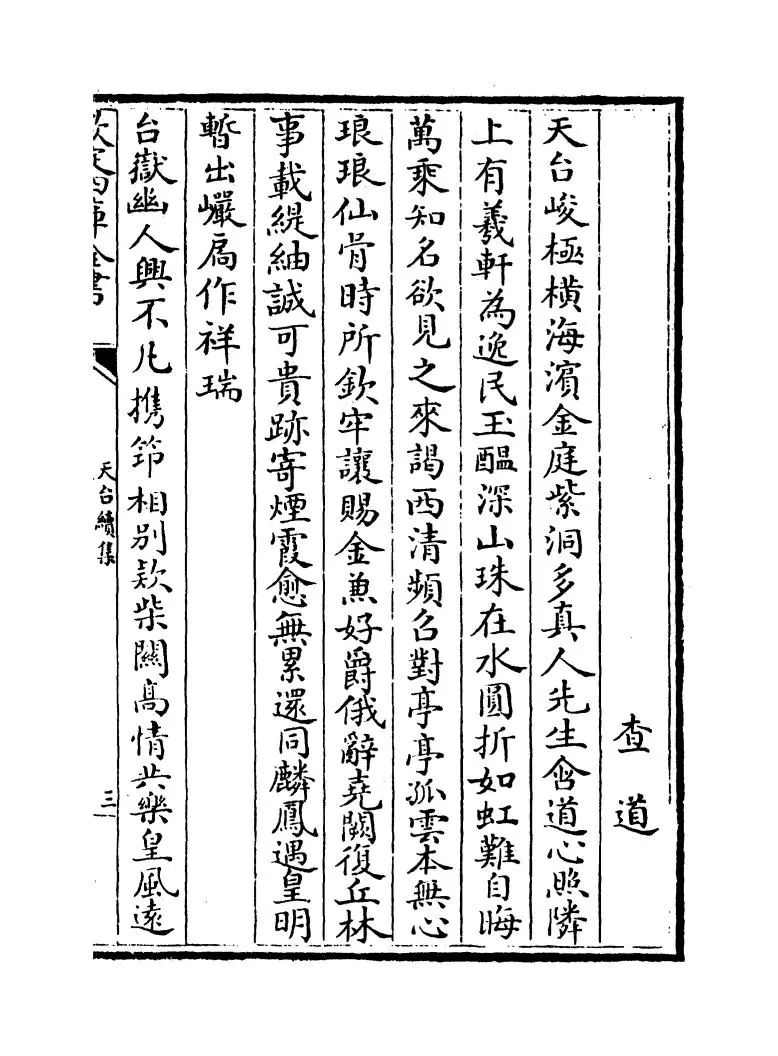 查道
天台峻極橫海濱金庭紫洞多真人先生含道心照隣
上有羲軒為逸民玉醞深山珠在水圓折如虹難自晦
萬乘知名欲見之來謁西清頻召對亭亭孤雲本無心
琅琅仙骨時所欽牢讓賜金兼好爵俄辭堯闕復丘林
事載緹紬誠可貴跡寄煙霞愈無累還同麟鳳遇皇明
暫出巗扄作祥瑞
台嶽幽人興不凡携筇相別欵柴關髙情共樂皇風遠
欽定四庫全書
天台續集
三